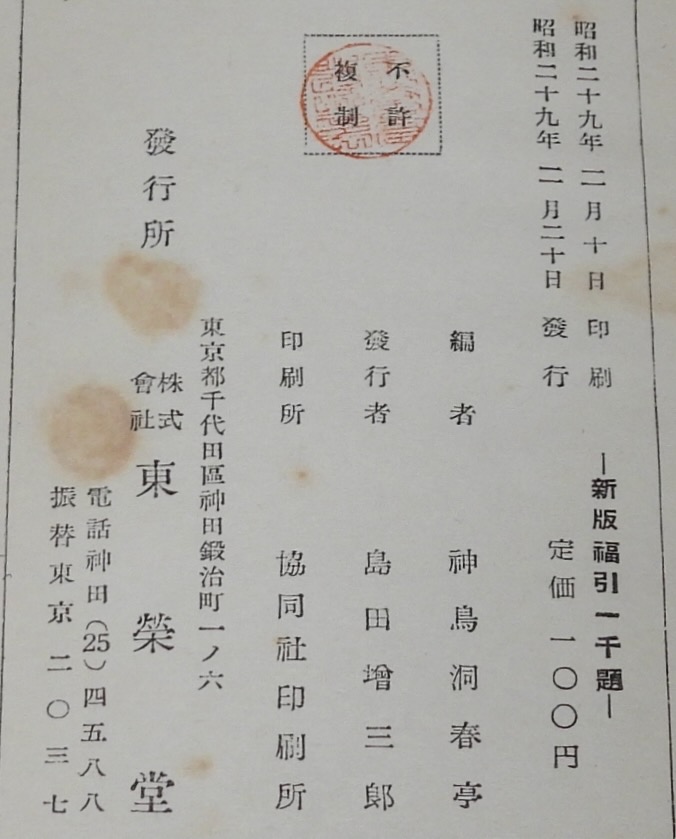 昭和二十九年一一月十日 印刷
昭和二十九年一一月二十日 發行
不許
複制
―新版福引一千題―
定価 一〇〇円
編者 神鳥洞春亭
發行者 島田增三郞
印刷所 協同社印刷所
東京都千代田區神田鍛治町一ノ六
發行所 株式會社 東榮堂
電話神田(25)四五八八
振替東京二〇三七